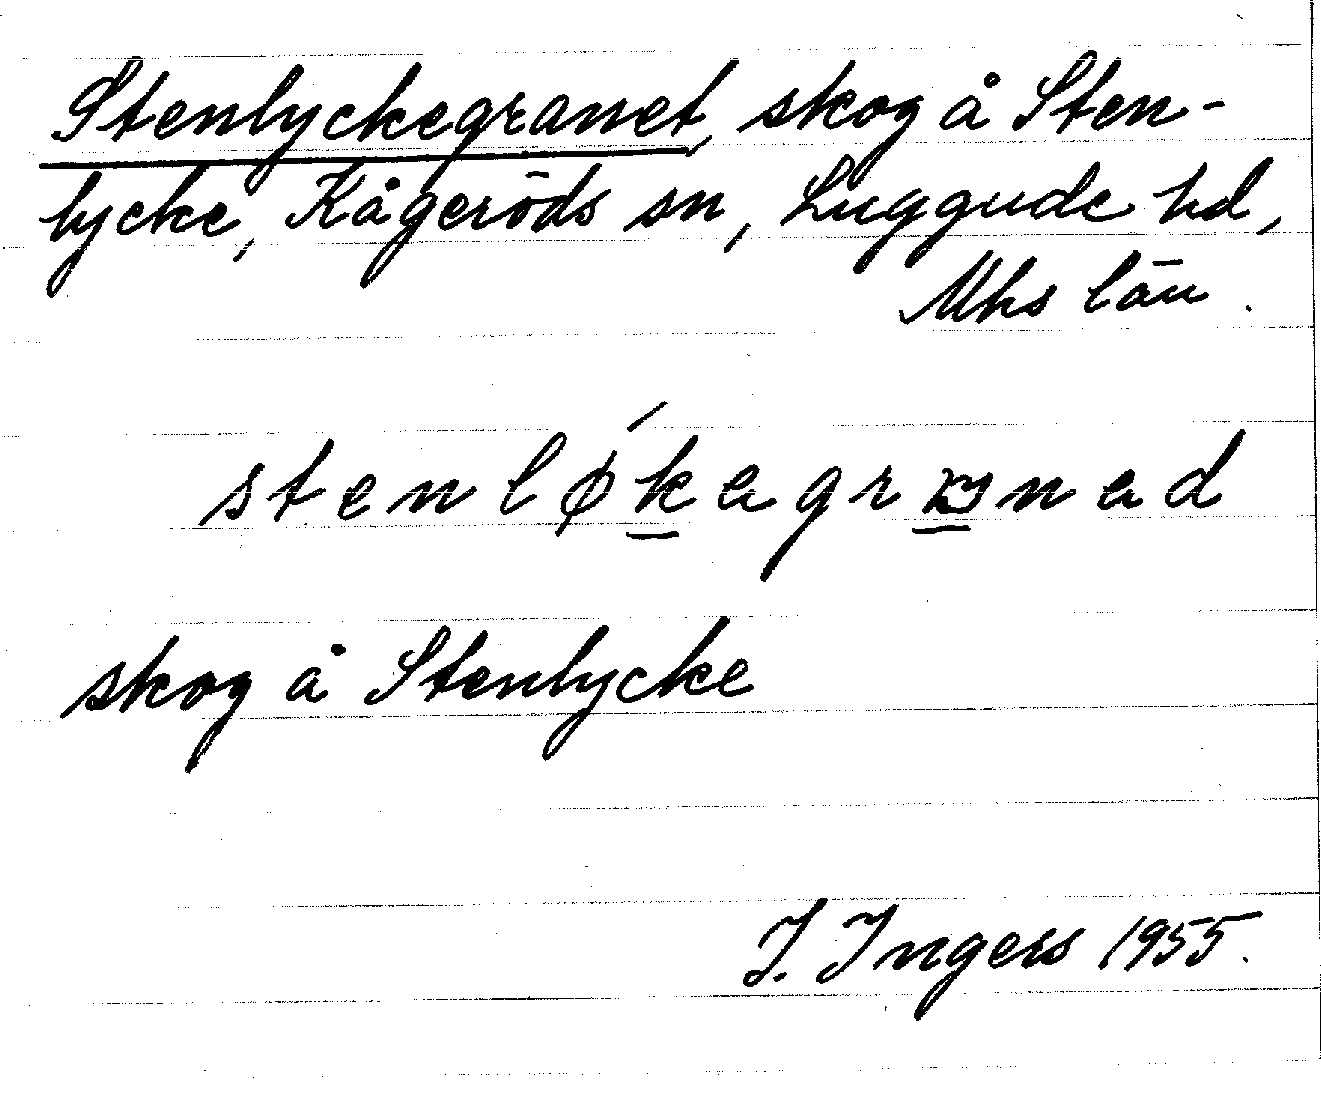 Stenlyckegranet, skog å Sten-
lycke, Kågeröds sn, Luggude hd,
Mhs län.
skog å Stenlycke
I. Ingers 1955.